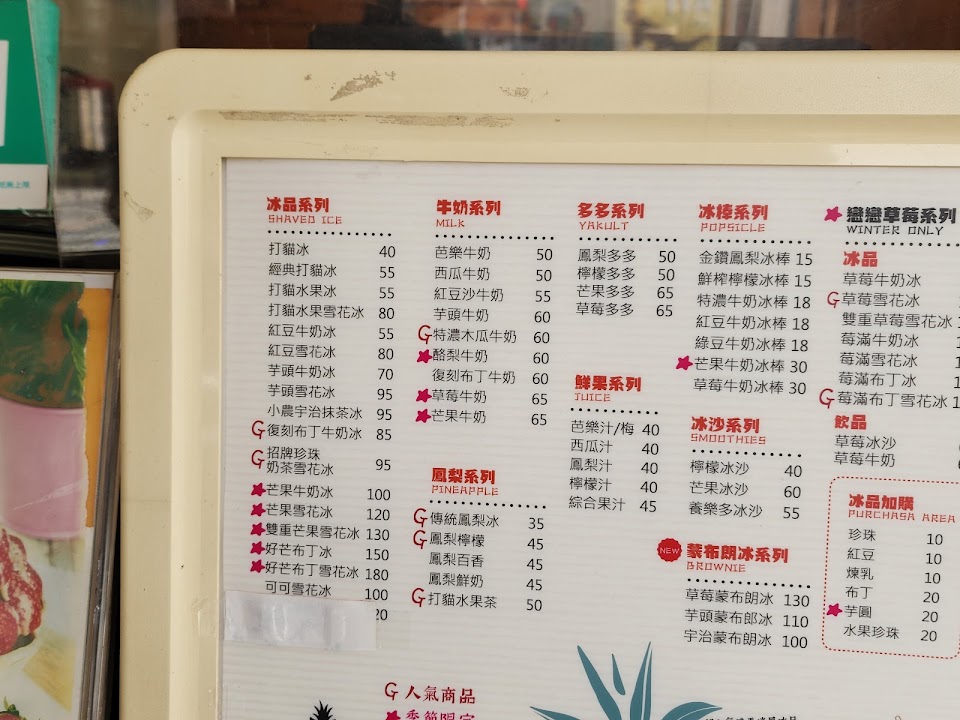 冰品系列
SHAVED ICE
打貓冰 40
經典打貓冰 55
打貓水果冰 55
打貓水果雪花冰 80
紅豆牛奶冰 55
紅豆雪花冰 80
芋頭牛奶冰 70
芋頭雪花冰 95
小農宇治抹茶冰 95
G復刻布丁牛奶冰 85
G招牌珍珠
奶茶雪花冰 95
芒果牛奶冰 100
芒果雪花冰 120
雙重芒果雪花冰 130
好芒布丁冰 150
好芒布丁雪花冰 180
可可雪花冰 100
20
牛奶系列
MILK
芭樂牛奶 50
西瓜牛奶 50
紅豆沙牛奶 55
芋頭牛奶 60
G特濃木瓜牛奶 60
酪梨牛奶 60
復刻布丁牛奶 60
草莓牛奶 65
芒果牛奶 65
鳳梨系列
PINEAPPLE
G傳統鳳梨冰 35
G鳳梨檸檬 45
鳳梨百香 45
鳳梨鮮奶 45
G打貓水果茶 50
多多系列
YAKULT
鳳梨多多 50
檸檬多多 50
芒果多多 65
草莓多多 65
鮮果系列
JUICE
芭樂汁/梅 40
西瓜汁 40
鳳梨汁 40
檸檬汁 40
綜合果汁 45
冰棒系列
POPSICLE
金鑽鳳梨冰棒 15
鮮榨檸檬冰棒 15
特濃牛奶冰棒 18
紅豆牛奶冰棒 18
綠豆牛奶冰棒 18
芒果牛奶冰棒 30
草莓牛奶冰棒 30
冰沙系列
SMOOTHIES
檸檬冰沙 40
芒果冰沙 60
養樂多冰沙 55
NEW 蒙布朗冰系列
BROWNIE
草莓蒙布朗冰 130
芋頭蒙布郎冰 110
宇治蒙布朗冰 100
戀戀草莓系列
WINTER ONLY
冰品
草莓牛奶冰
G草莓雪花冰
雙重草莓雪花冰
莓滿牛奶冰
莓滿雪花冰
莓滿布丁冰
G莓滿布丁雪花冰
飲品
草莓冰沙
草莓牛奶
冰品加購
PURCHASA AREA
珍珠 10
紅豆 10
煉乳 10
布丁 20
芋圓 20
水果珍珠 20
G人氣商品
季節限定